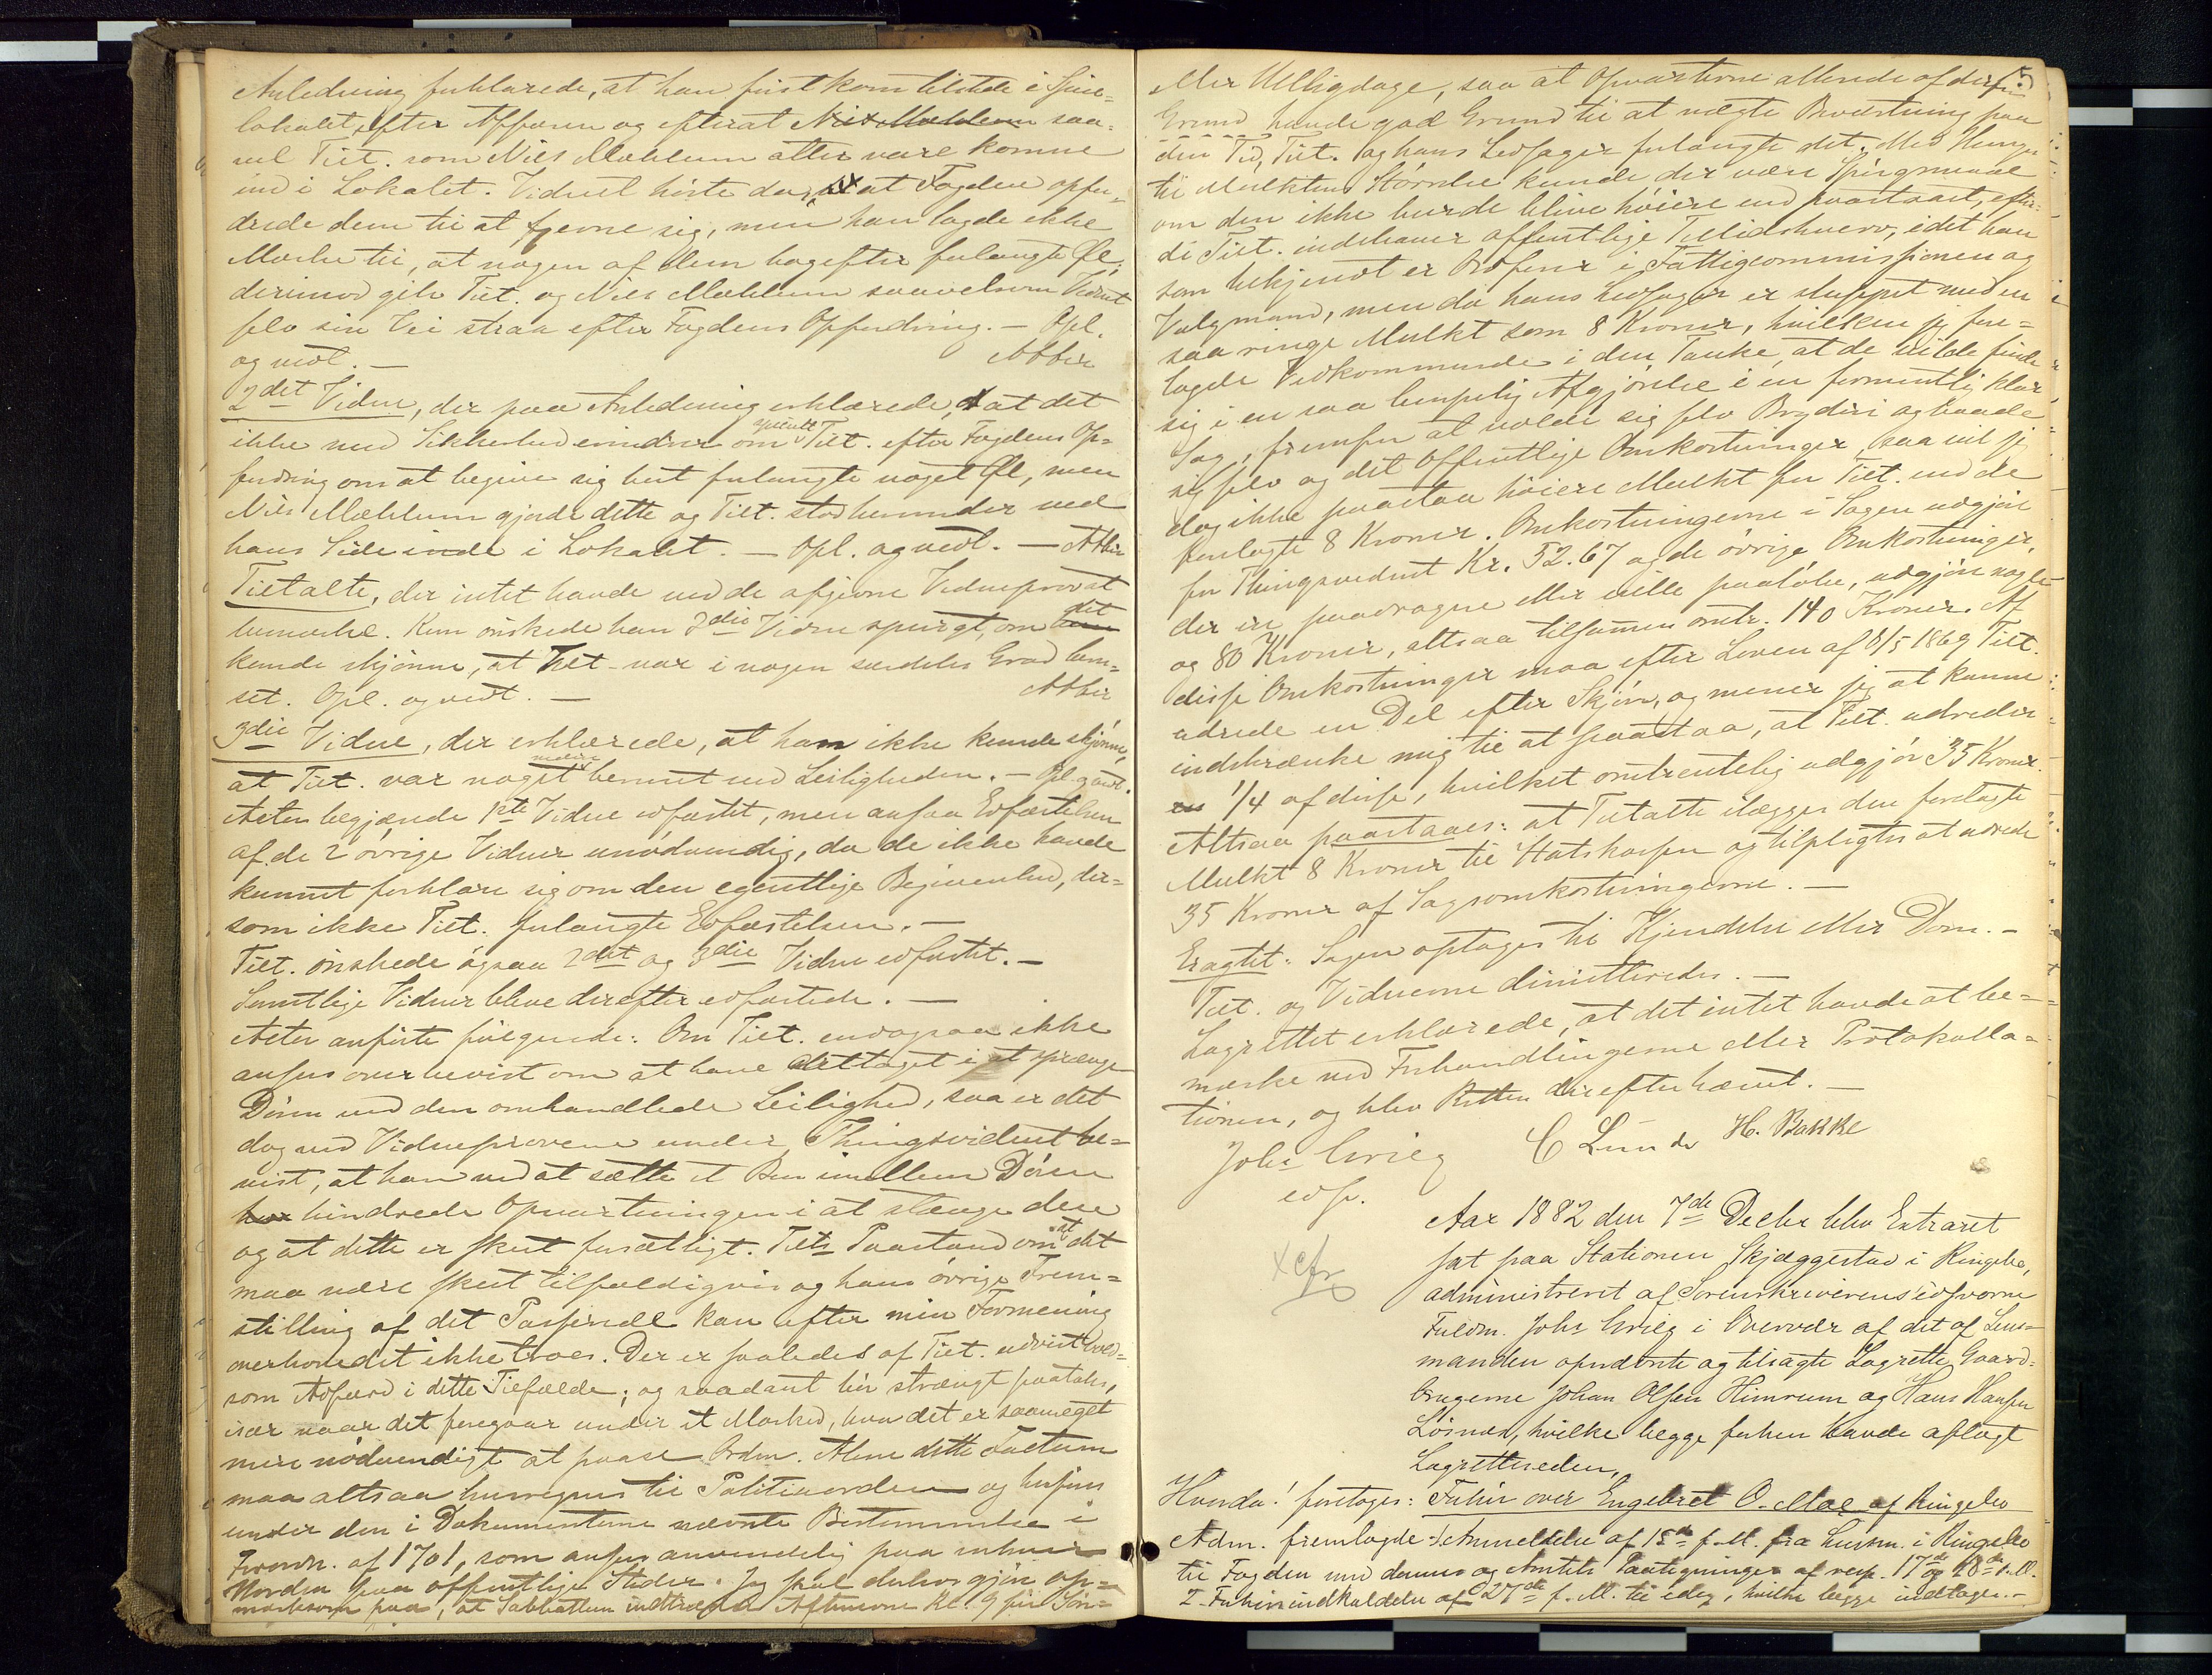 Anledning forklarede, at han først kom tilstede i Spise=
lokalet, efter Affæren og efterat Nils Mæhlum saa=
vel Tilt. som Niels Mæhlum atter vare komne
ind i Lokalet. Vidnet hørte da, at Fogden opfor=
drede dem til at fjerne sig, men han lagde ikke
Mærke til, at nogen af dem bagefter forlangte Øl;
derimod gik Tilt. og Niels Mæhlum saavelsom Vidnet
selv sin Vei strax efter Fogdens Opfordring. – Opl.
og vedt. – Aftr.
2det Vidne, der paa Anledning erklærede, at det
ikke med Sikkerhed erindrer om specielt Tilt. efter Fogdens Op=
fordring om at begive sig bort forlangte noget Øl, men
Nils Mæhlum gjorde dette og Tilt. stod herunder ved
hans Side inde i Lokalet. – Opl. og vedt. – Aftr.
Tiltalte, der intet havde ved de afgivne Vidneprov at
bemærke. Kun ønskede han 3die Vidne spurgt, om det
kunde skjønne, at Tilt. var i nogen særdeles Grad beru=
set. Opl. og vedt. – Aftr.
3die Vidne, der erklærede, at han ikke kunde skjønne,
at Tilt. var noget videre beruset ved Leiligheden. – Opl. og vedt.
Actor begjærede 1ste Vidne edfæstet, men ansaa Edfæstelsen
af de 2 øvrige Vidner unødvendig, da de ikke havde
kunnet forklare sig om den egentlige Begivenhed, der=
som ikke Tilt. forlangte Edfæstelsen. –
Tilt. ønskede ogsaa 2det og 3die Vidne edfæstet. –
Samtlige Vidner bleve derefter edfæstede. –
Actor anførte følgende: Om Tilt. endogsaa ikke
ansees overbevist om at have deltaget i at sprænge
Døren ved den omhandlede Leilighed, saa er det
dog ved Vidneprovene under Thingsvidnet be=
vist, at han ved at sætte et Ben imellem Døren
har hindrede Opvartningen i at stænge dere
og at dette er skeet forsætligt. Tilts Paastand om at det
maa være skeet tilfældigvis og hans øvrige Frem=
stilling af det Passerede kan efter min Formening
overhovedet ikke troes. Der er saaledes af Tilt. udvist vold=
som Adfærd i dette Tilfælde; og saadant bør strængt paatales,
især naar det foregaar under et Marked, hvor det er saameget
mere nødvendigt at paase Orden. Alene dette Factum
maa altsaa henregnes til Politiuorden og henføres
under den i Dokumenterne nævnte Bestemmelse i
Forordn. af 1701, som ansees anvendelig paa enhver
Uorden paa offentlige Steder. Jeg skal derhos gjøre op=
mærksom paa, at Sabbathen indtræder Aftenerne Kl. 9 før Søn=
5.
eller Helligdage, saa at Opvarterne allerede af den
Grund havde god Grund til at nægte Beværtning paa
den Tid, Tilt. og hans Ledsager forlangte det. Med Hensyn
til Mulktens Størrelse kunde der være Spørgsmaal
om den ikke burde blive høiere end paastaaet, efter=
di Tilt. indehaver offentlige Tillidshverv, idet han
som bekjendt er Ordfører i Fattigcommissionen og
Valgmand, men da hans Ledsager er sluppet med en
saa ringe Mulkt som 8 Kroner, hvilken jeg fore=
lagde Vedkommende i den Tanke, at de vilde finde
sig i en saa lempelig Afgjørelse i en formentlig klar
Sag, fremfor at volde sig selv Bryderi og baade
sig selv og det Offentlige Omkostninger, saa vil jeg
dog ikke paastaa høiere Mulkt for Tilt. end de
forelagte 8 Kroner. Omkostningerne i Sagen udgjøre
for Thingsvidnet Kr. 52.67 og de øvrige Omkostninger,
der ere paadragne eller ville paaløbe, udgjøre nogle
og 80 Kroner, altsaa tilsammen omtr. 140 Kroner. Af
disse Omkostninger maa efter Loven af 8/5 1869 Tilt.
udrede en Del efter Skjøn, og mener jeg at kunne
indskrænke mig til at paastaa, at Tilt. udreder
1/4 af disse, hvilket omtrentlig udgjør 35 Kroner.
Altsaa paastaaes: at Tiltalte ilægges den forelagte
Mulkt 8 Kroner til Statskassen og tilpligtes at udrede
35 Kroner af Sagsomkostningerne. –
Eragtet: Sagen optages til Kjendelse eller Dom. –
Tilt. og Vidnerne dimitteredes. –
Lagrettet erklærede, at det intet havde at be=
mærke ved Forhandlingerne eller Protokolla=
tionen, og blev Retten derefter hævet. –
Johs Grieg C Lunde H. Bakke
edsv.
x cfr
Aar 1882 den 7de Decbr blev Extraret
sat paa Stationen Skjæggestad i Ringebo,
administreret af Sorenskriverens edsvorne
Fuldm. Johs Grieg i Overvær af det af Lens=
manden opnævnte og tilsagte Lagrette, Gaard=
brugerne Johan Olsen Himrum og Hans Hansen
Løsnæs, hvilke begge forhen havde aflagt
Lagretteseden.
Hvorda! foretoges: Forhør over Engebret O. Moe af Ringebo
Adm. fremlagde 1. Anmeldelse af 15de f. M. fra Lensm. i Ringebo
til Fogden med dennes og Amtets Paategninger af resp. 17de og 20de s. M.
2. Forhørsindkaldelse af 27de f. M. til idag, hvilke begge indtages. –